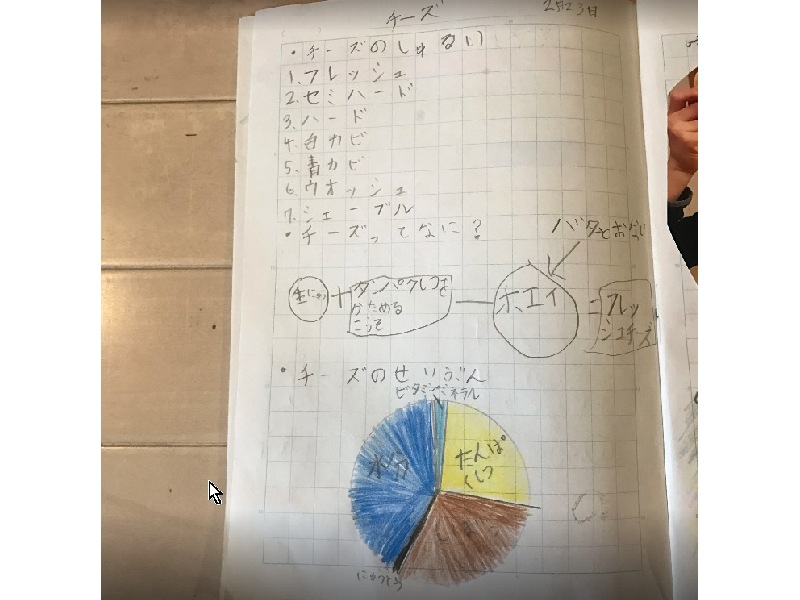 チーズ
2月23日
・チーズのしゅるい
1.フレッシュ
2.セミハード
3.ハード
4.白カビ
5.青カビ
6.ウオッシュ
7.シェーブル
・チーズってなに?
バターと
生にゅう + タンパクしつを
かためる
こうそ
― ホエイ = フレッ
シュチーズ
・チーズのせいぶん
ビタミンミネラル
水分
たんぱ
くしつ